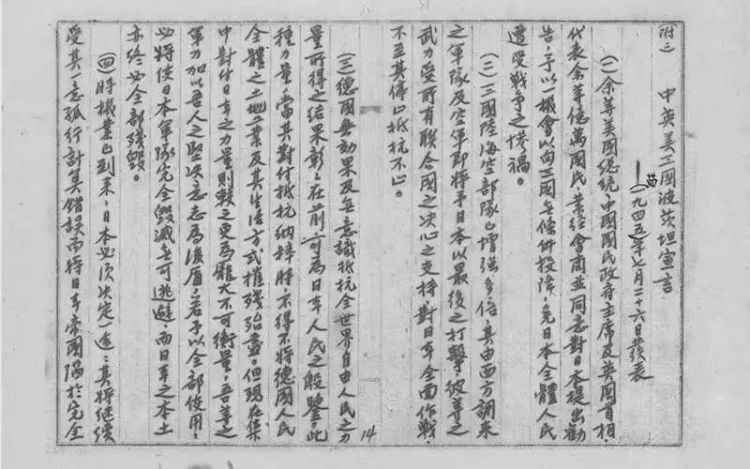 附二
中英美三國波茨坦宣言
——(一九四五年七月二十六日發表
(一)余等美國總統、中國國民政府主席及英國首相,
代表余等億萬國民,業經會商並同意對日本提出勸
告,予以一機會以向三國無條件投降,免日本全體人民
遭受戰爭之慘禍。
(二)三國陸海空部隊已增強多倍,其由西方調來
之軍隊及空軍即將予日本以最後之打擊,彼等之
武力受所有聯合國之決心之支持,對日本全面作戰,
不至其停止抵抗不止。
14
(三)德國無効果及無意識抵抗全世界自由人民之力
量所得之結果,彰彰在前,可為日本人民之殷鑒。此
種力量,當其對付抵抗納粹時,不得不將德國人民
全體之土地工業及其生活方式摧殘殆盡。但現在集
中對付日本之力量則較之更為龐大不可衡量,吾等之
軍力加以吾人之堅決意志為後盾,若予以全部使用,
必將使日本軍隊完全毀滅無可逃避,而日本之本土
亦終必全部殘毀。
(四)時機業已到來,日本必須決定一途:其將繼續
受其一意孤行計算錯誤而將日本帝國陷於完全